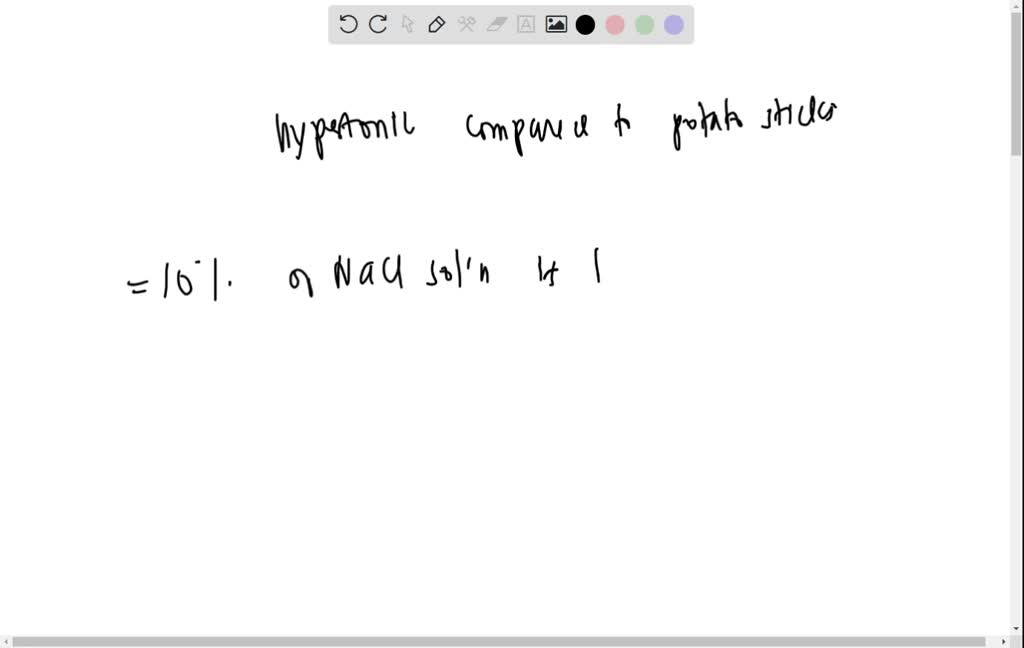 hypertonic compared to potato sticks
= 10%. of NaCl sol'n is